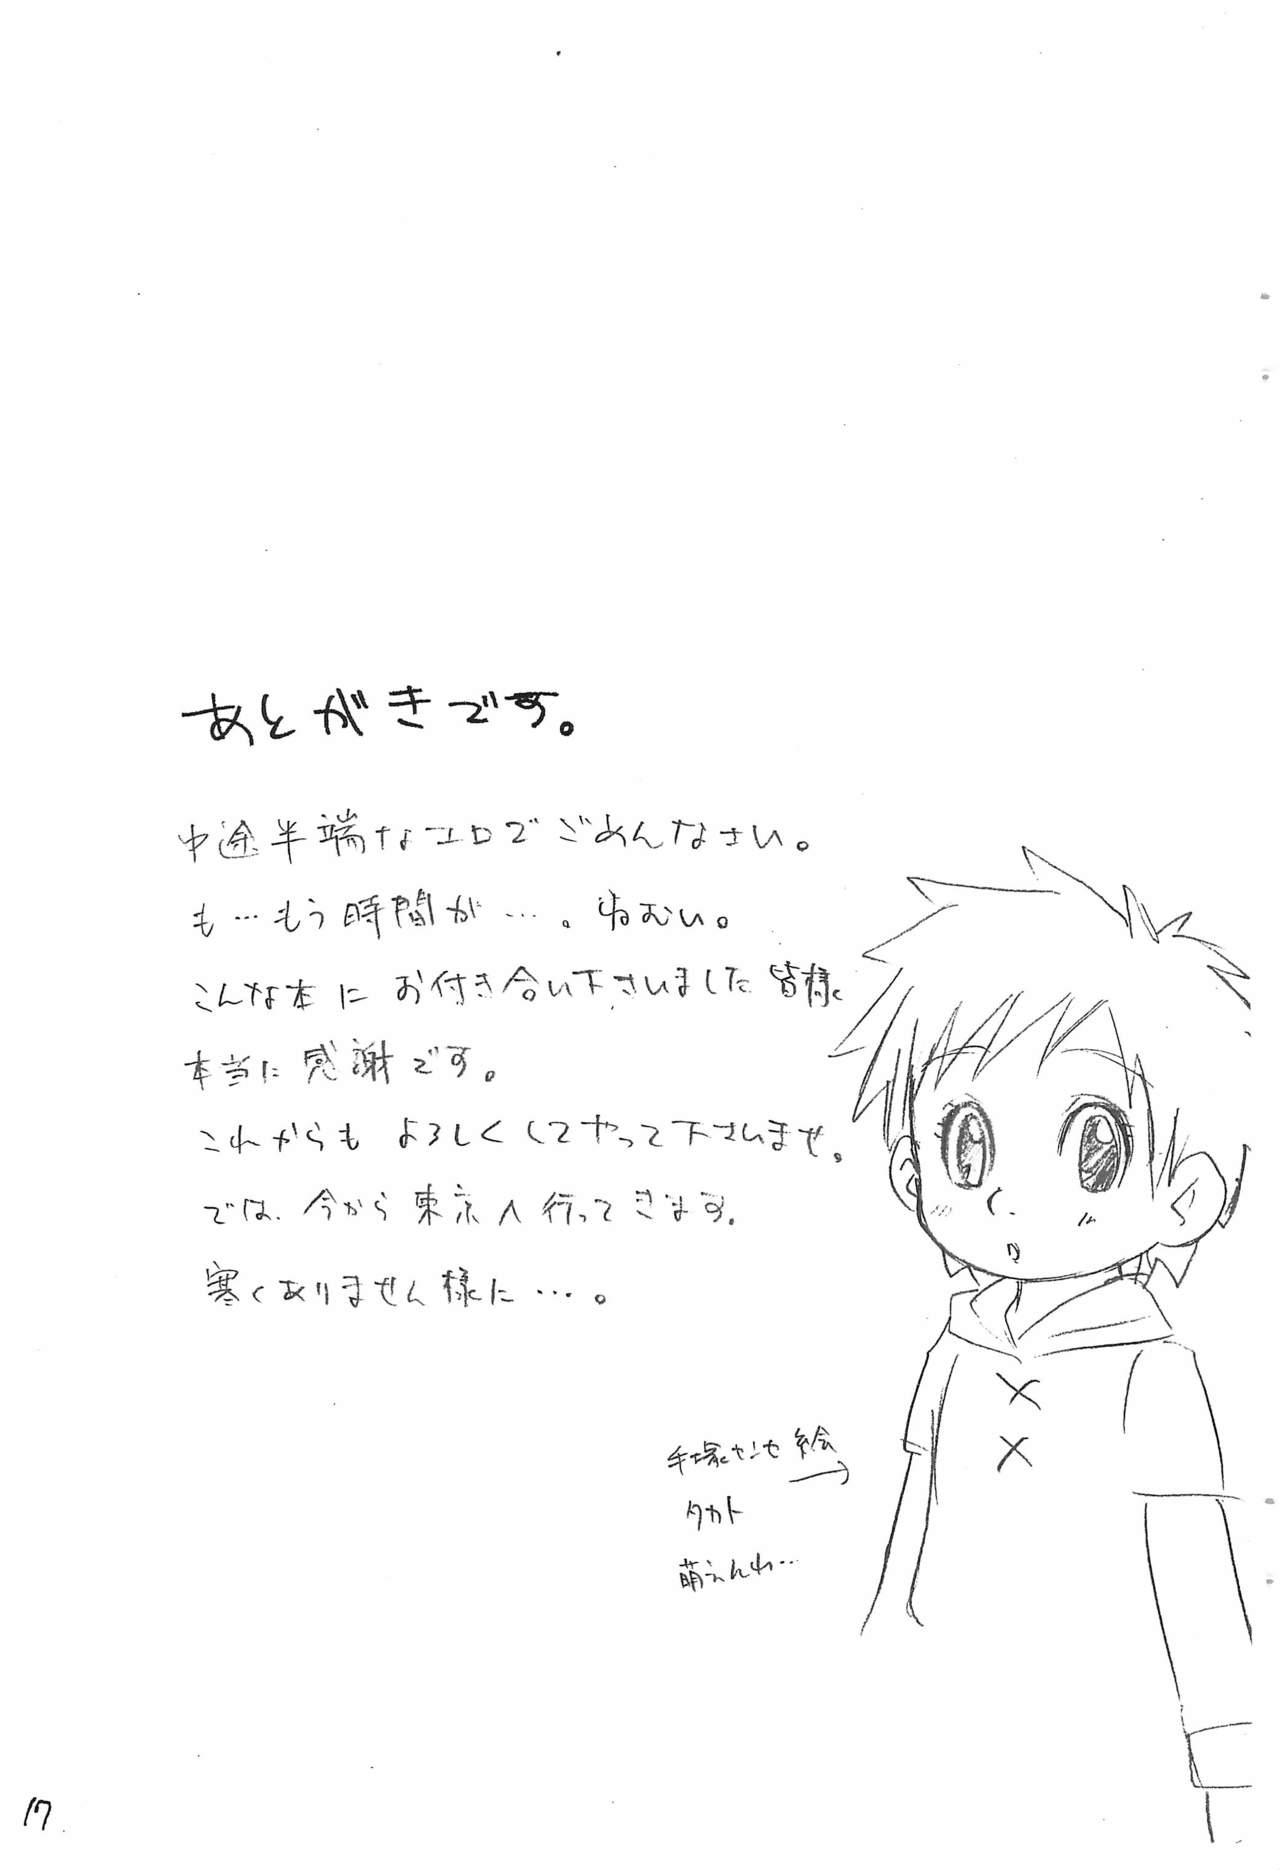 あとがきです。
中途半端なエロでごめんなさい。
も…もう時間が…。ねむい。
こんな本にお付き合い下さいました皆様、
本当に感謝です。
これからもよろしくしてやって下さいませ。
では、今から東京へ行ってきます。
寒くありません様に…。
手塚センセ絵
→
タカト
萌えんわ…
17